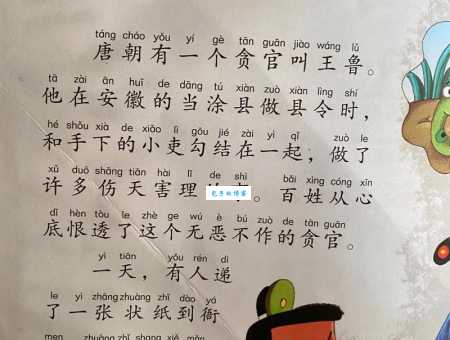 táng cháo yǒu yí gè tān guān jiào wáng lǔ
唐朝有一个贪官叫王鲁。
tā zài ān huī de dāng tú xiàn zuò xiàn lìng shí
他在安徽的当涂县做县令时，
hé shǒu xià de xiǎo lì gōu jié zài yì qǐ zuò le
和手下的小吏勾结在一起，做了
xǔ duō shāng tiān hài lǐ de shì bǎi xìng cóng xīn
许多伤天害理。百姓从心
dǐ hèn tòu le zhè ge wú è bú zuò de tān guān
底恨透了这个无恶不作的贪官。
yì tiān yǒu rén dì
一天，有人递
le yì zhāng zhuàng zhǐ dào yá
了一张状纸到衙